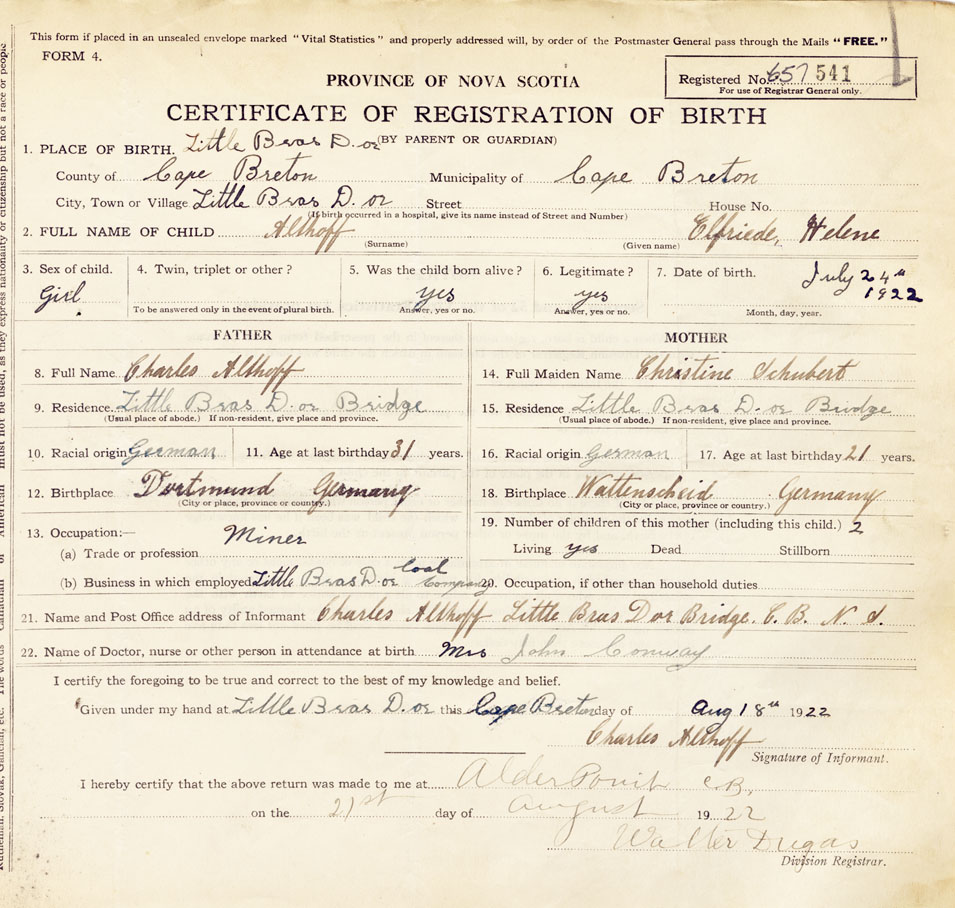 This form if placed in an unsealed envelope marked "Vital Statistics" and properly addressed will, by order of the Postmaster General pass through the Mails "FREE."
FORM 4.
PROVINCE OF NOVA SCOTIA
Registered No. 657 541
For use of Registrar General only.
CERTIFICATE OF REGISTRATION OF BIRTH
(BY PARENT OR GUARDIAN)
1. PLACE OF BIRTH. Little Bras D.or
County of Cape Breton Municipality of Cape Breton
City, Town or Village Little Bras D.or Street House No.
(If birth occurred in a hospital, give its name instead of Street and Number)
2. FULL NAME OF CHILD Althoff Elfriede, Helene
(Surname) (Given name)
3. Sex of child. 4. Twin, triplet or other? 5. Was the child born alive? 6. Legitimate? 7. Date of birth. July 24th
Girl yes yes 1922
To be answered only in the event of plural birth. Answer, yes or no. Answer, yes or no. Month, day, year.
FATHER MOTHER
8. Full Name Charles Althoff 14. Full Maiden Name Christine Schubert
9. Residence Little Bras D.or Bridge 15. Residence Little Bras D.or Bridge
(Usual place of abode.) If non-resident, give place and province. (Usual place of abode.) If non-resident, give place and province.
10. Racial origin German 11. Age at last birthday 31 years. 16. Racial origin German 17. Age at last birthday 21 years.
12. Birthplace Dortmund Germany 18. Birthplace Wattenscheid Germany
(City or place, province or country.) (City or place, province or country.)
13. Occupation:— Miner 19. Number of children of this mother (including this child.) 2
(a) Trade or profession Living yes Dead Stillborn
(b) Business in which employed Little Bras D.or Coal Company 20. Occupation, if other than household duties
21. Name and Post Office address of Informant Charles Althoff Little Bras Dor Bridge. C. B. N. S.
22. Name of Doctor, nurse or other person in attendance at birth. Mrs John Conway
I certify the foregoing to be true and correct to the best of my knowledge and belief.
Given under my hand at Little Bras D.or this Cape Breton day of Aug 18th 1922
Charles Althoff
Signature of Informant.
I hereby certify that the above return was made to me at Alder Point C.B.
on the 21st day of August 1922
Walter Dugas
Division Registrar.